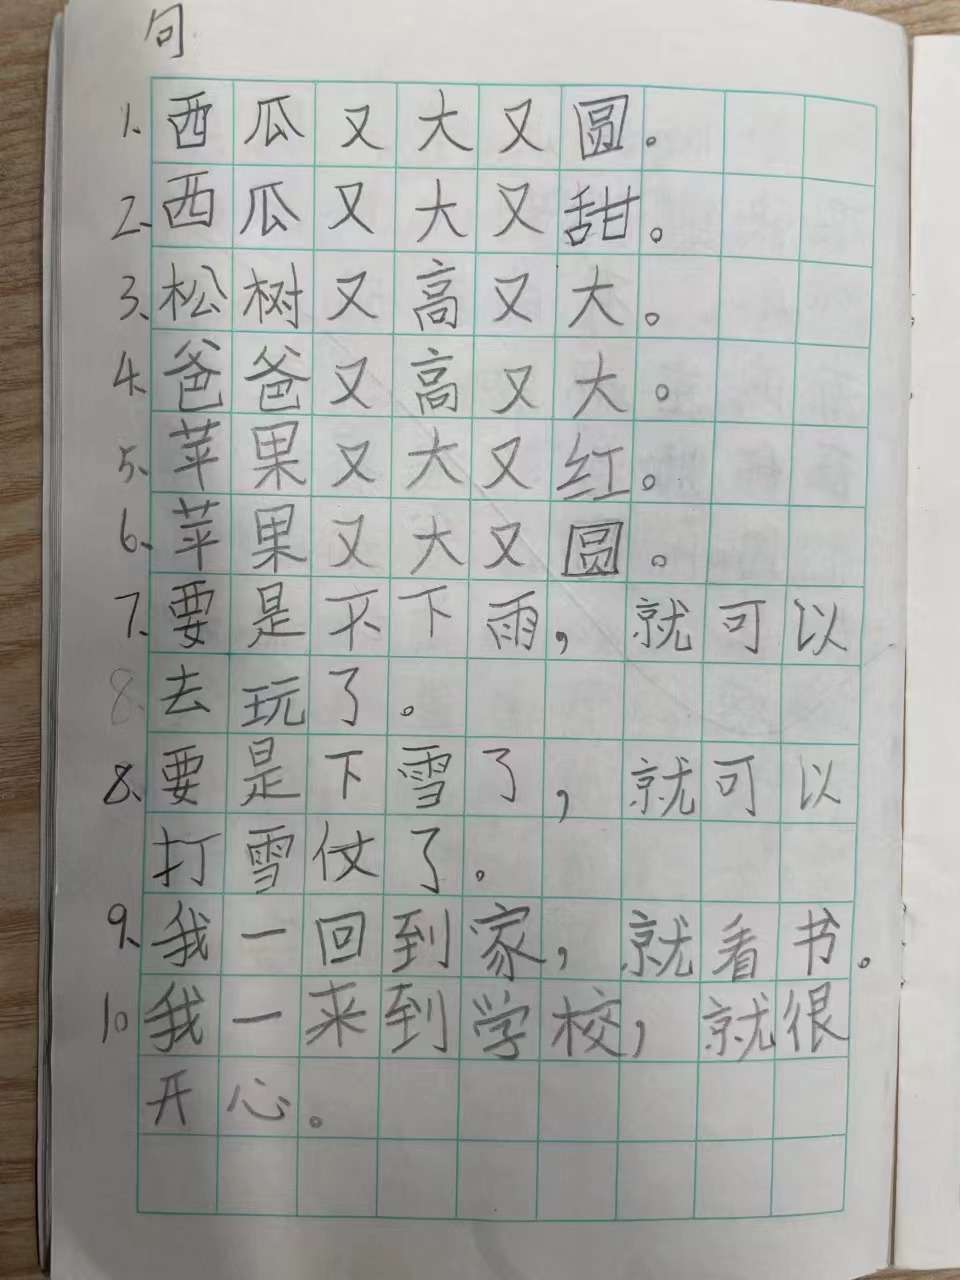 句
1、西瓜又大又圆。
2、西瓜又大又甜。
3、松树又高又大。
4、爸爸又高又大。
5、苹果又大又红。
6、苹果又大又圆。
7、要是不下雨，就可以
8、去玩了。
8、要是下雪了，就可以
打雪仗了。
9、我一回到家，就看书。
10 我一来到学校，就很
开心。